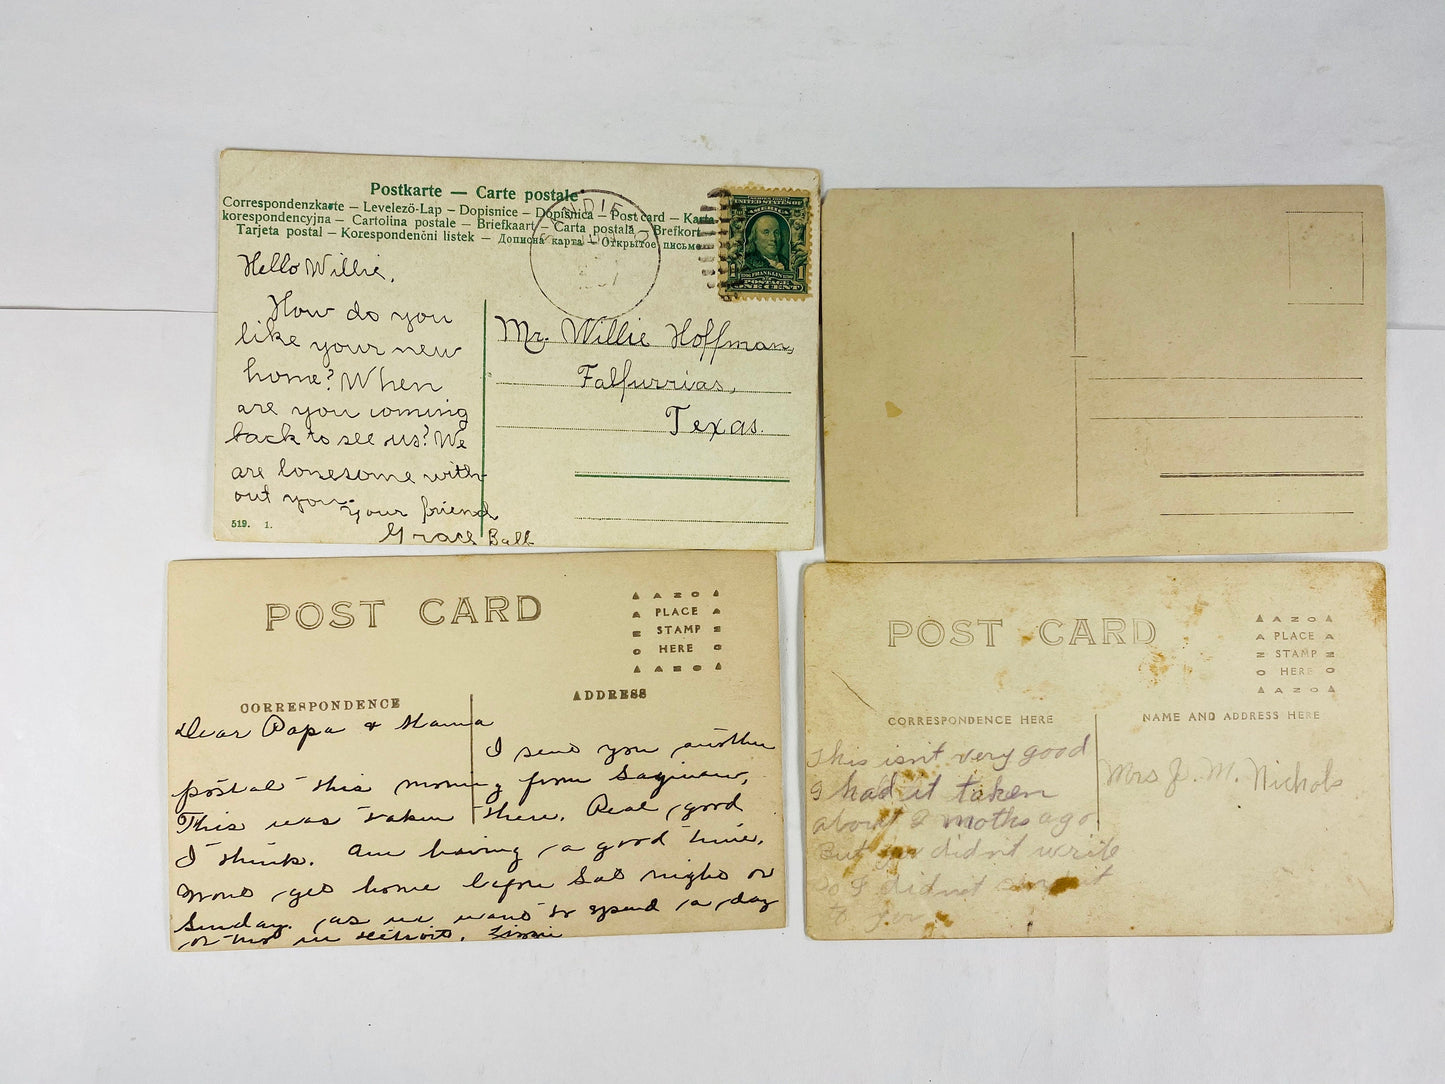 Postkarte — Carte postale
Correspondenzkarte – Levelező-Lap – Dopisnice – Dopisnica – Post card – Karta
korespondencyjna – Cartolina postale – Briefkaart – Carta postală – Brefkort
Tarjeta postal – Korespondenční listek – Дописна карта – Открытое письмо
UNITED STATES OF
AMERICA
1 FRANKLIN 1
POSTAGE
ONE CENT
Hello Willie,
How do you
like your new
home? When
are you coming
back to see us? We
are lonesome with-
out you.
Your friend
Grace Ball
519. 1.
Mr. Willie Hoffman,
Falfurrias,
Texas.
POST CARD
AZO
PLACE
STAMP
HERE
AZO
CORRESPONDENCE
ADDRESS
Dear Papa & Mama
I send you another
postal this morning from Saginaw,
This was taken there. Real good
I think. Am having a good time.
Wont get home before Sat night or
Sunday. as we want to spend a day
or two in Detroit. Lizzie
POST CARD
AZO
PLACE
STAMP
HERE
AZO
CORRESPONDENCE HERE
NAME AND ADDRESS HERE
This isn't very good
I had it taken
about 2 moths ago
But you didnt write
so I didnot send it
to you
Mrs J. M. Nichols